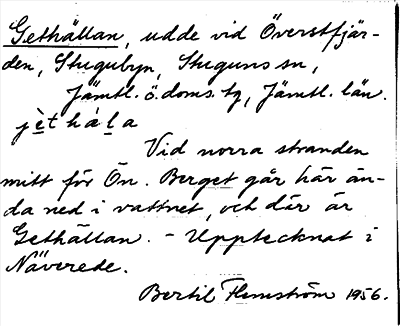 Gethällan, udde vid Överstfjär-
den, Stugubyn, Stuguns sn,
Jämtl. ö. doms. tg, Jämtl. län.
jèt hàla
Vid norra stranden
mitt för Ön. Berget går här än-
da ned i vattnet, och där är
Gethällan. - Upptecknat i
Näverede.
Bertil Flemström 1956.